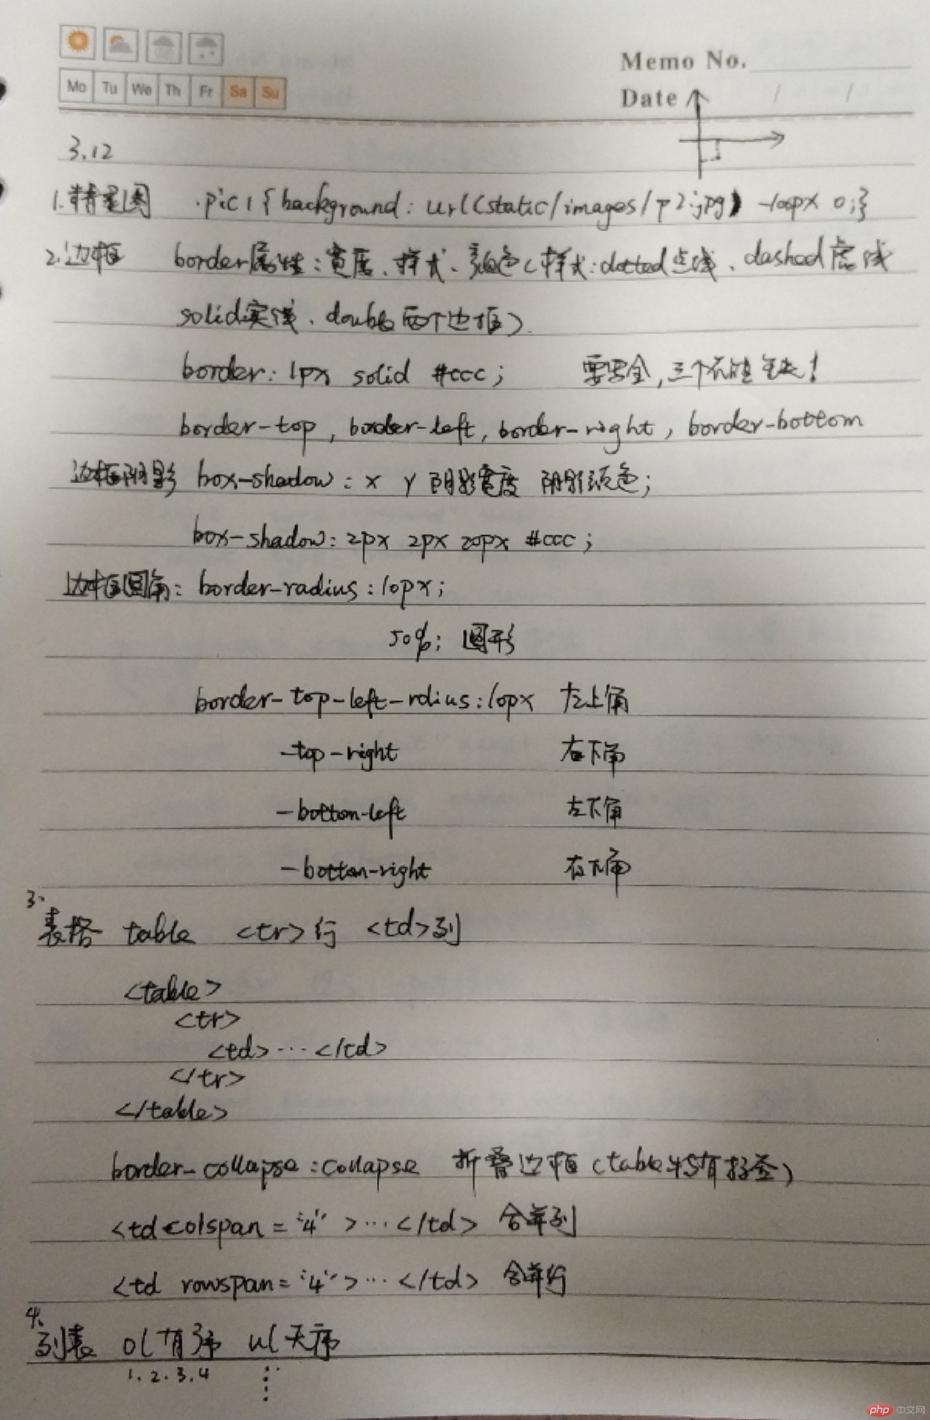 Memo No.
Mo Tu We Th Fr Sa Su
Date / /
3.12
1.精灵图 .pic1{background: url(static/images/p2.jpg) -100px 0;}
2.边框 border属性:宽度、样式、颜色(样式:dotted点线、dashed虚线
solid实线、double两个边框)
border: 1px solid #ccc; 要写全,三个不能缺!
border-top, border-left, border-right, border-bottom
边框阴影 box-shadow: x y 阴影宽度 阴影颜色;
box-shadow: 2px 2px 20px #ccc;
边框圆角: border-radius: 10px;
50%; 圆形
border-top-left-rdius: 10px 左上角
-top-right 右下角
-bottom-left 左下角
-bottom-right 右下角
3.
表格 table <tr>行 <td>列
<table>
<tr>
<td>...</td>
</tr>
</table>
border-collapse: collapse 折叠边框(table特有
<td colspan="4">...</td> 合并列
<td rowspan="4">...</td> 合并行
4.
列表 ol有序 ul无序
1.2.3.4
php 中文网